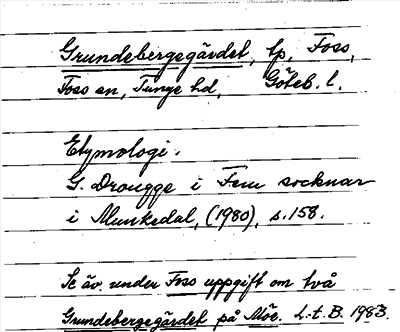 Grundebergegärdet, lp, Foss,
Foss sn, Tunge hd, Göteb. l.
Etymologi.
G. Drougge i Fem socknar
i Munkedal, (1980), s. 158.
Se äv. under Foss uppgift om två
Grundebergegärdet på Möe. L-t. B. 1983.